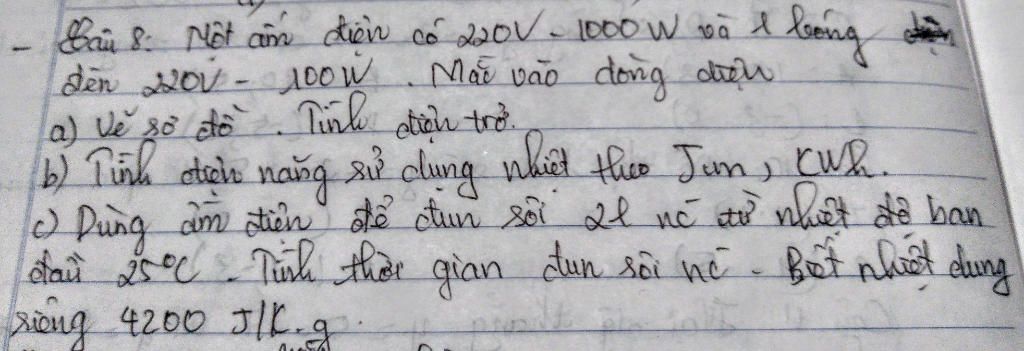 - Câu 8: Một ấm điện có 220V - 1000W và 1 bóng
đèn 220V - 100W. Mắc vào dòng điện
a) Vẽ sơ đồ. Tính điện trở.
b) Tính điện năng sử dụng nhiệt theo Jun, KWh.
c) Dùng ấm điện để đun sôi 2l nc từ nhiệt độ ban
đầu 25°C. Tính thời gian đun sôi nc. Biết nhiệt dung
riêng 4200 J/K.g.